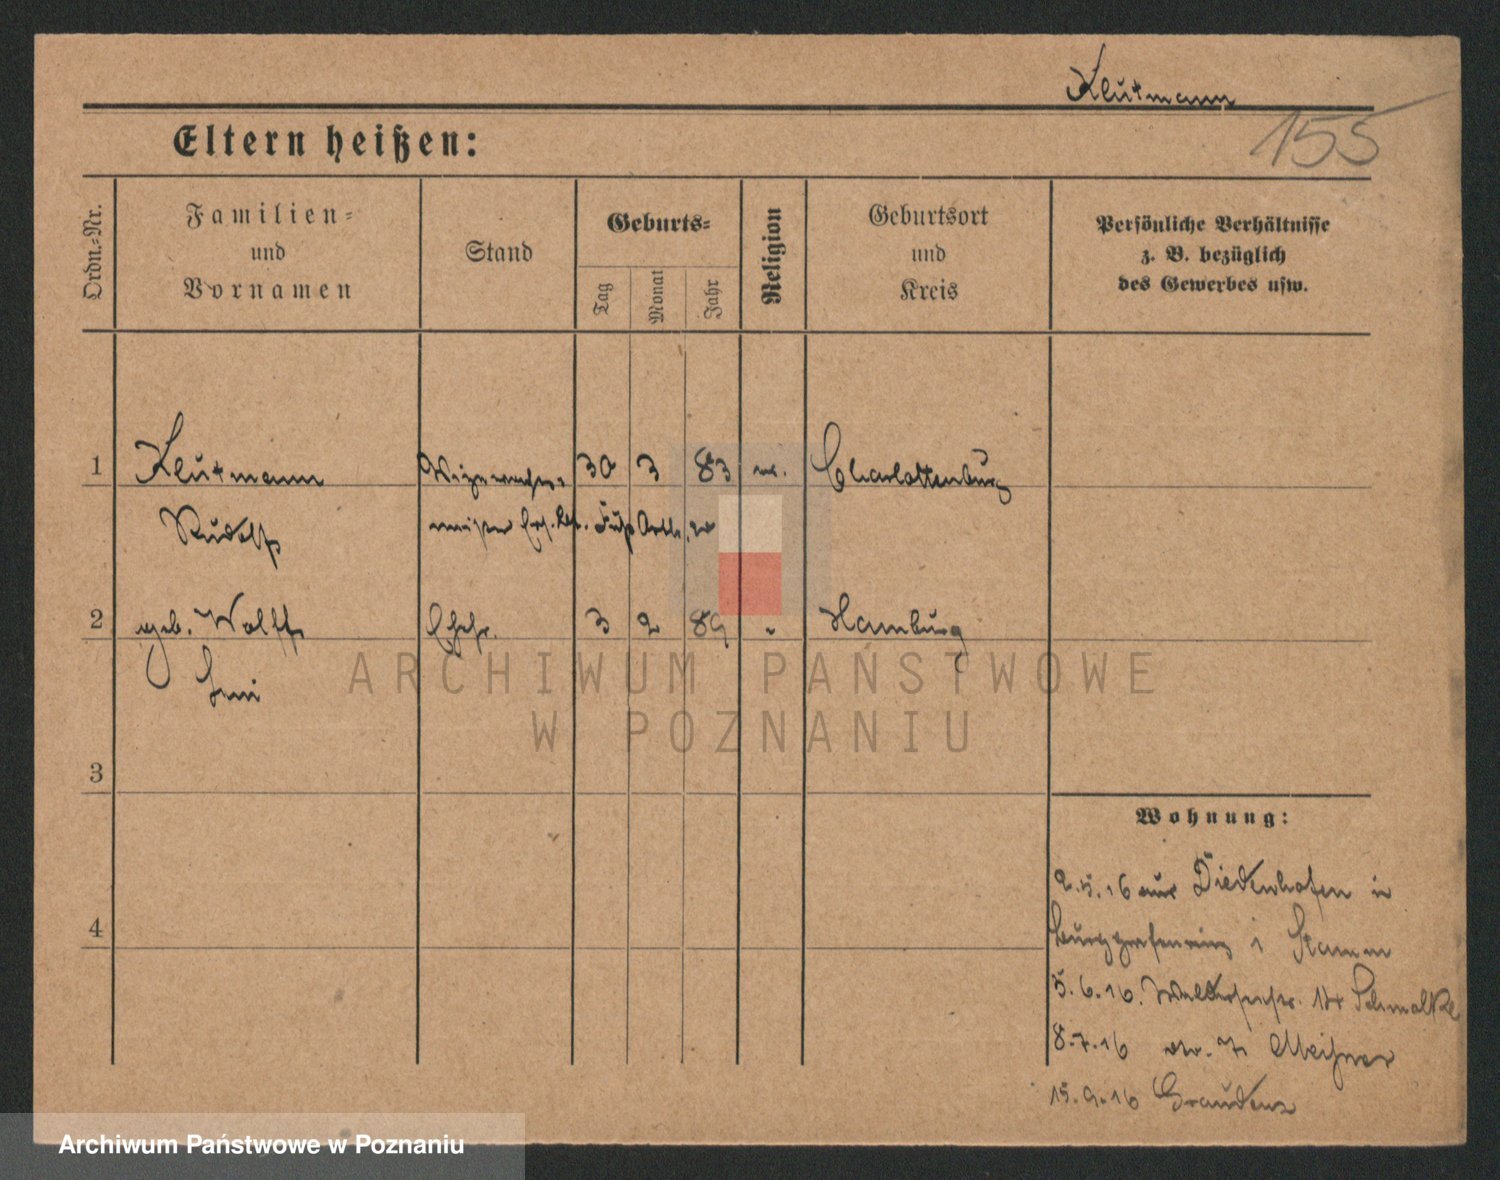 Klütmann
155
Eltern heißen:
Ordn.-Nr.
Familien-
und
Vornamen
Stand
Geburts-
Tag
Monat
Jahr
Religion
Geburtsort
und
Kreis
Persönliche Verhältnisse
z. B. bezüglich
des Gewerbes usw.
1 Klütmann 30 3 83 Charlottenburg
Rudolf
2 geb. Wolff Ehefr. 3 2 89 " Hamburg
3
4
Wohnung:
2.5.16 aus Diedenhofen in
i Stamm
5.6.16. Schmalke
8.7.16 Meißner
15.9.16 Graudenz
ARCHIWUM PAŃSTWOWE
W POZNANIU
Archiwum Państwowe w Poznaniu